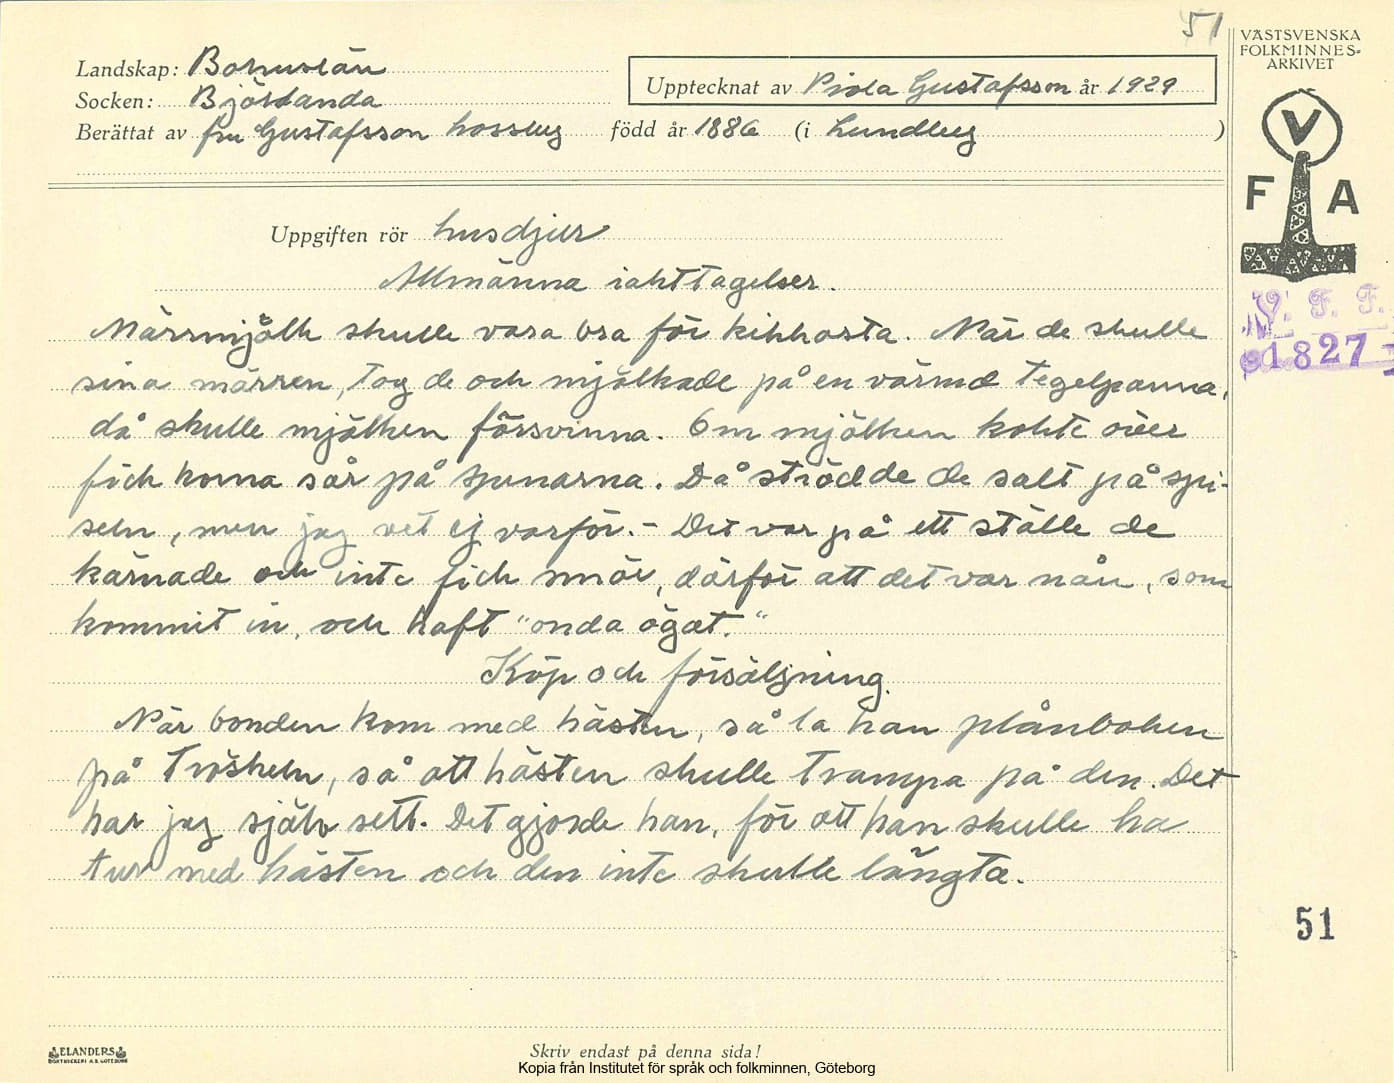 51
VÄSTSVENSKA
FOLKMINNES-
ARKIVET
Landskap: Bohuslän
Socken: Björlanda
Upptecknat av Viola Gustafsson år 1929
Berättat av fru Gustafsson född år 1886 (i Lundby)
V
F A
Uppgiften rör husdjur
Allmänna iakttagelser.
V. F. F.
1827
Märrmjölk skulle vara bra för kikhosta. När de skulle
sina märren, tog de och mjölkade på en värmd tegelpanna,
då skulle mjölken försvinna. Om mjölken kokte över
fick korna sår på spenarna. Då strödde de salt på spi-
seln, men jag vet ej varför. - Det var på ett ställe de
kärnade och inte fick smör, därför att det var nån, som
kommit in, och haft "onda ögat."
Köp och försäljning.
När bonden kom med hästen, så la han plånboken
på tröskeln, så att hästen skulle trampa på den. Det
har jag själv sett. Det gjorde han, för att han skulle ha
tur med hästen och den inte skulle längta.
51
ELANDERS
BOKTRYCKERI A.B. GÖTEBORG
Skriv endast på denna sida!
Kopia från Institutet för språk och folkminnen, Göteborg